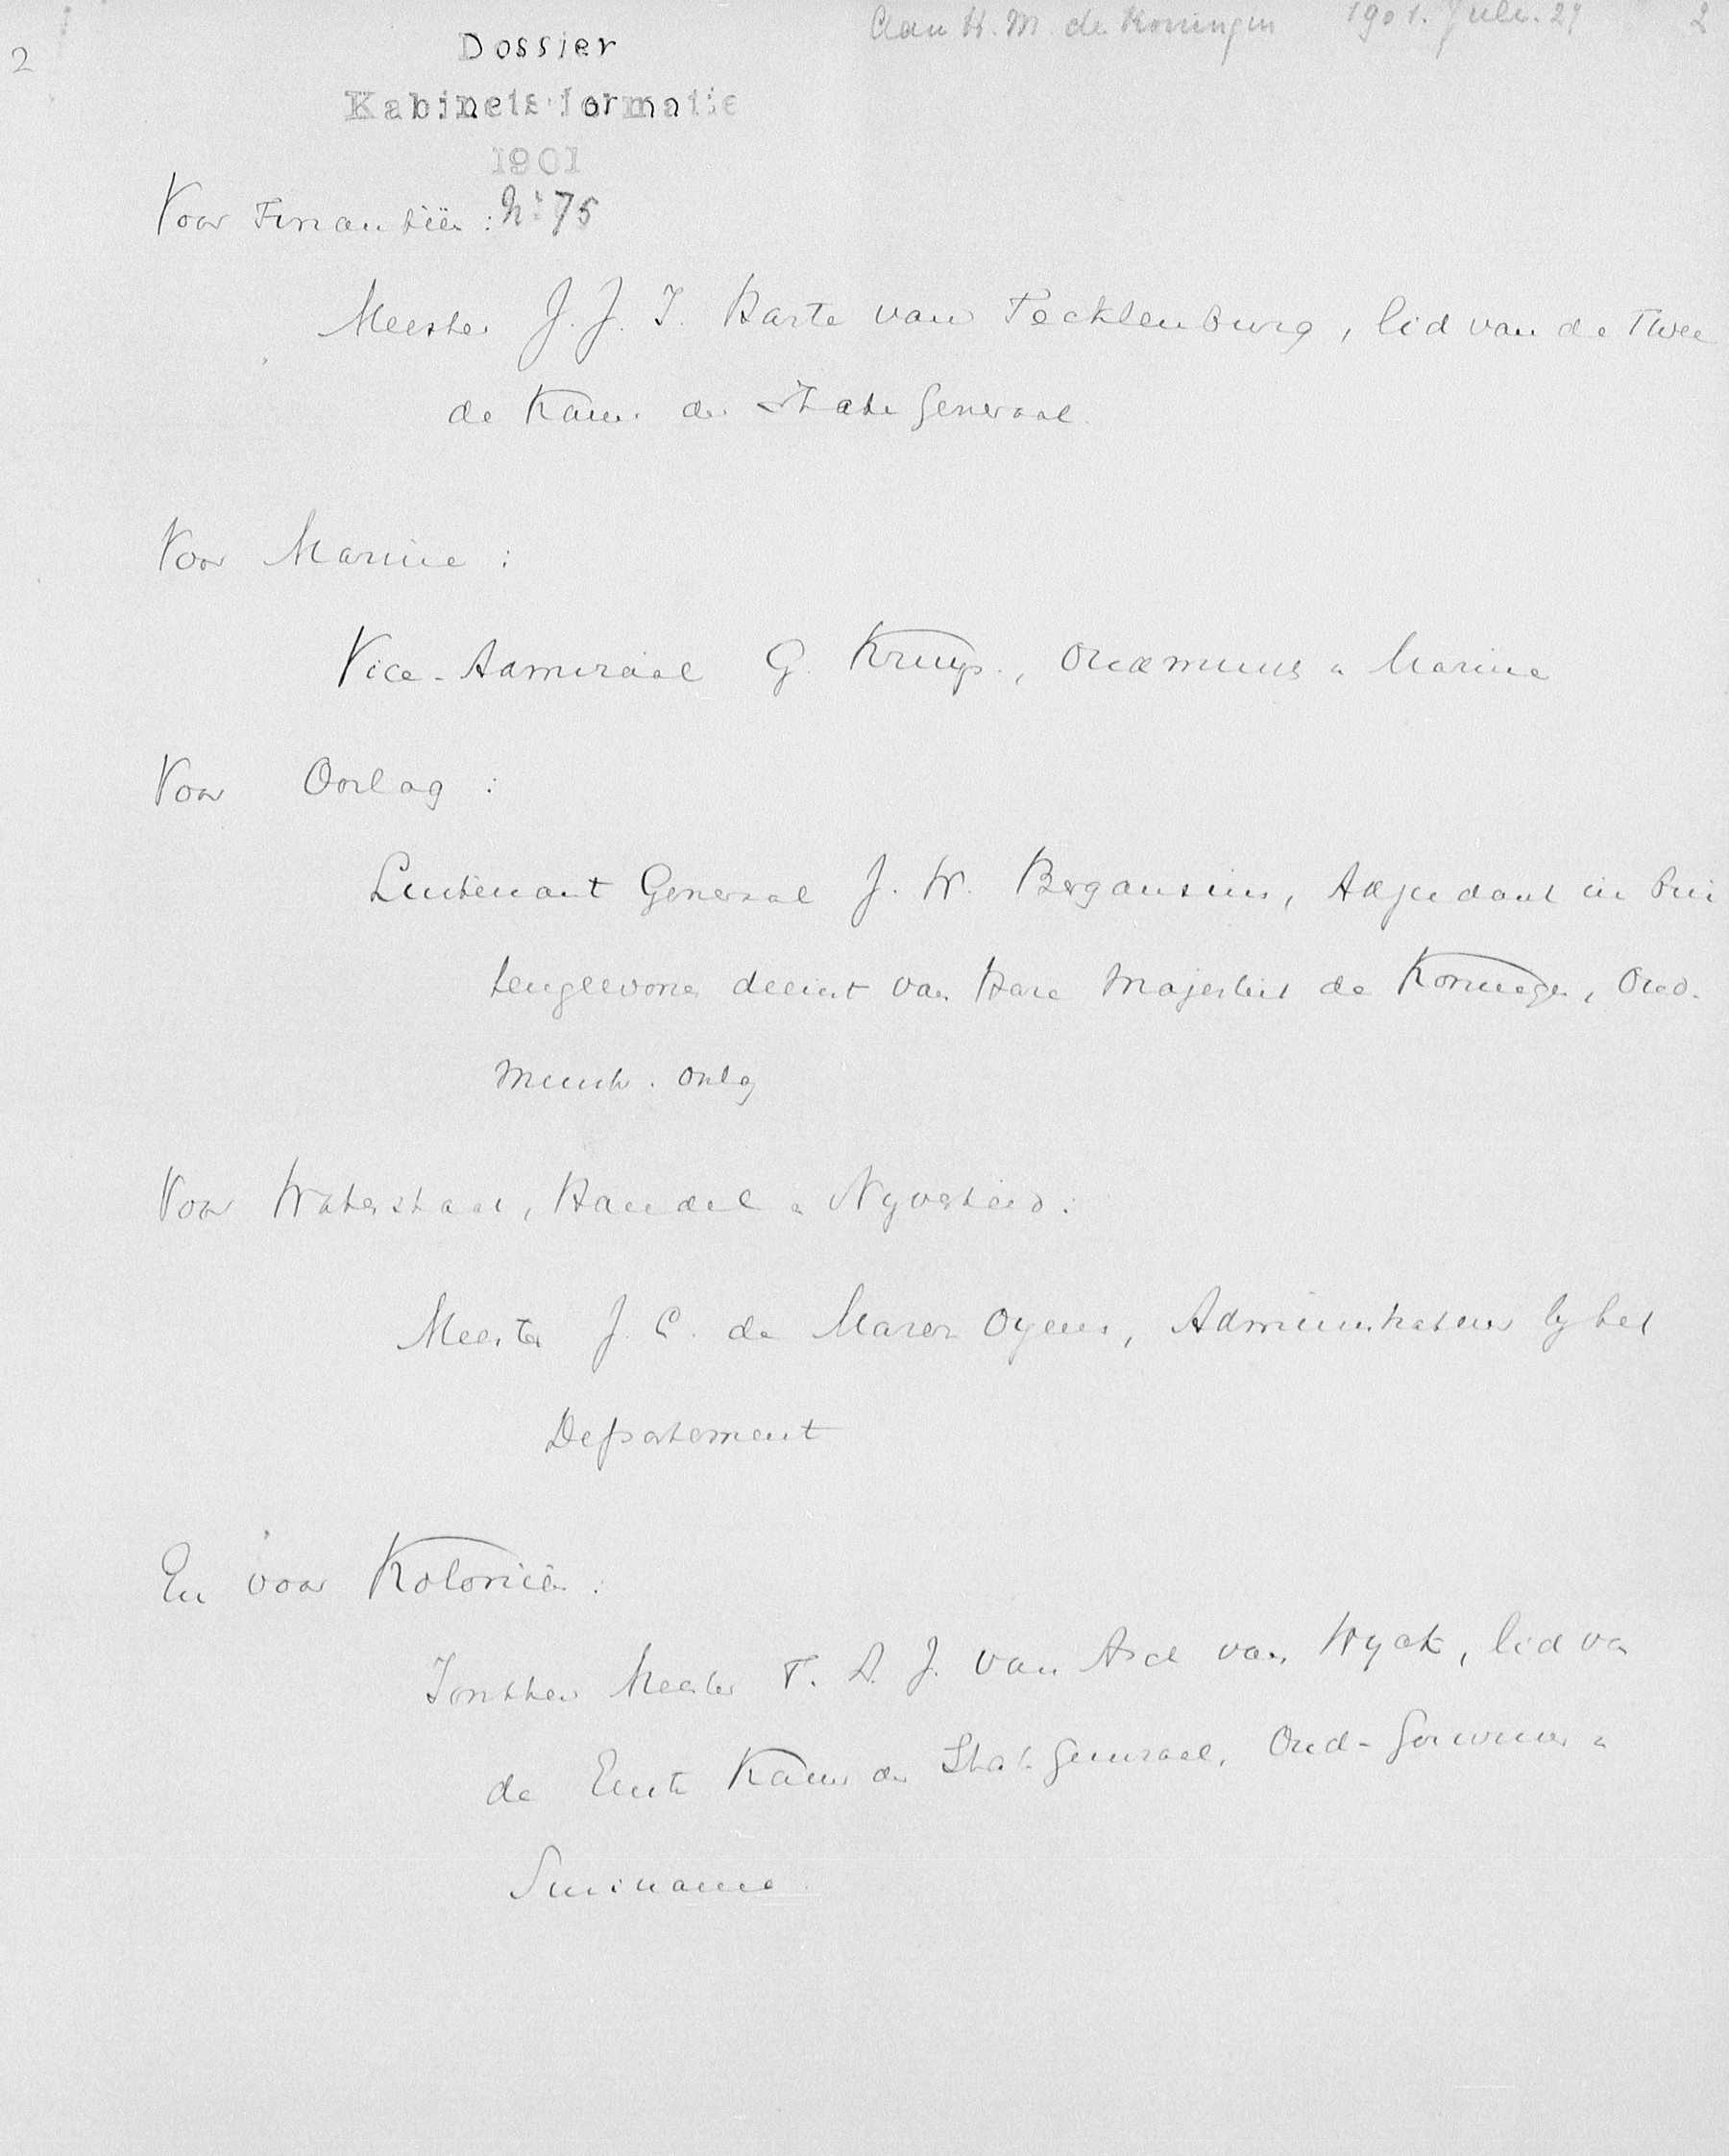 Aan H. M. de Koningin 1901. Juli. 29 2
2
Dossier
Kabinetsformatie
1901
No 75
Voor Financiën:
Meester J. J. I. Harte van Tecklenburg, lid van de Twee
de Kamer der Staten Generaal.
Voor Marine:
Vice-Admiraal G. Kruys, Oud minister v Marine
Voor Oorlog:
Luitenant Generaal J. W. Bergansius, Adjudant in bui
tengewonen dienst van Hare Majesteit de Koningin, Oud-
Minister v. Oorlog
Voor Waterstaat, Handel & Nyverheid:
Meester J. C. de Marez Oyens, Administrateur by het
Departement
En voor Koloniën:
Jonkheer Meester T. A. J. van Asch van Wyck, lid van
de Eerste Kamer der Staten Generaal, Oud-Gouverneur v
Suriname.